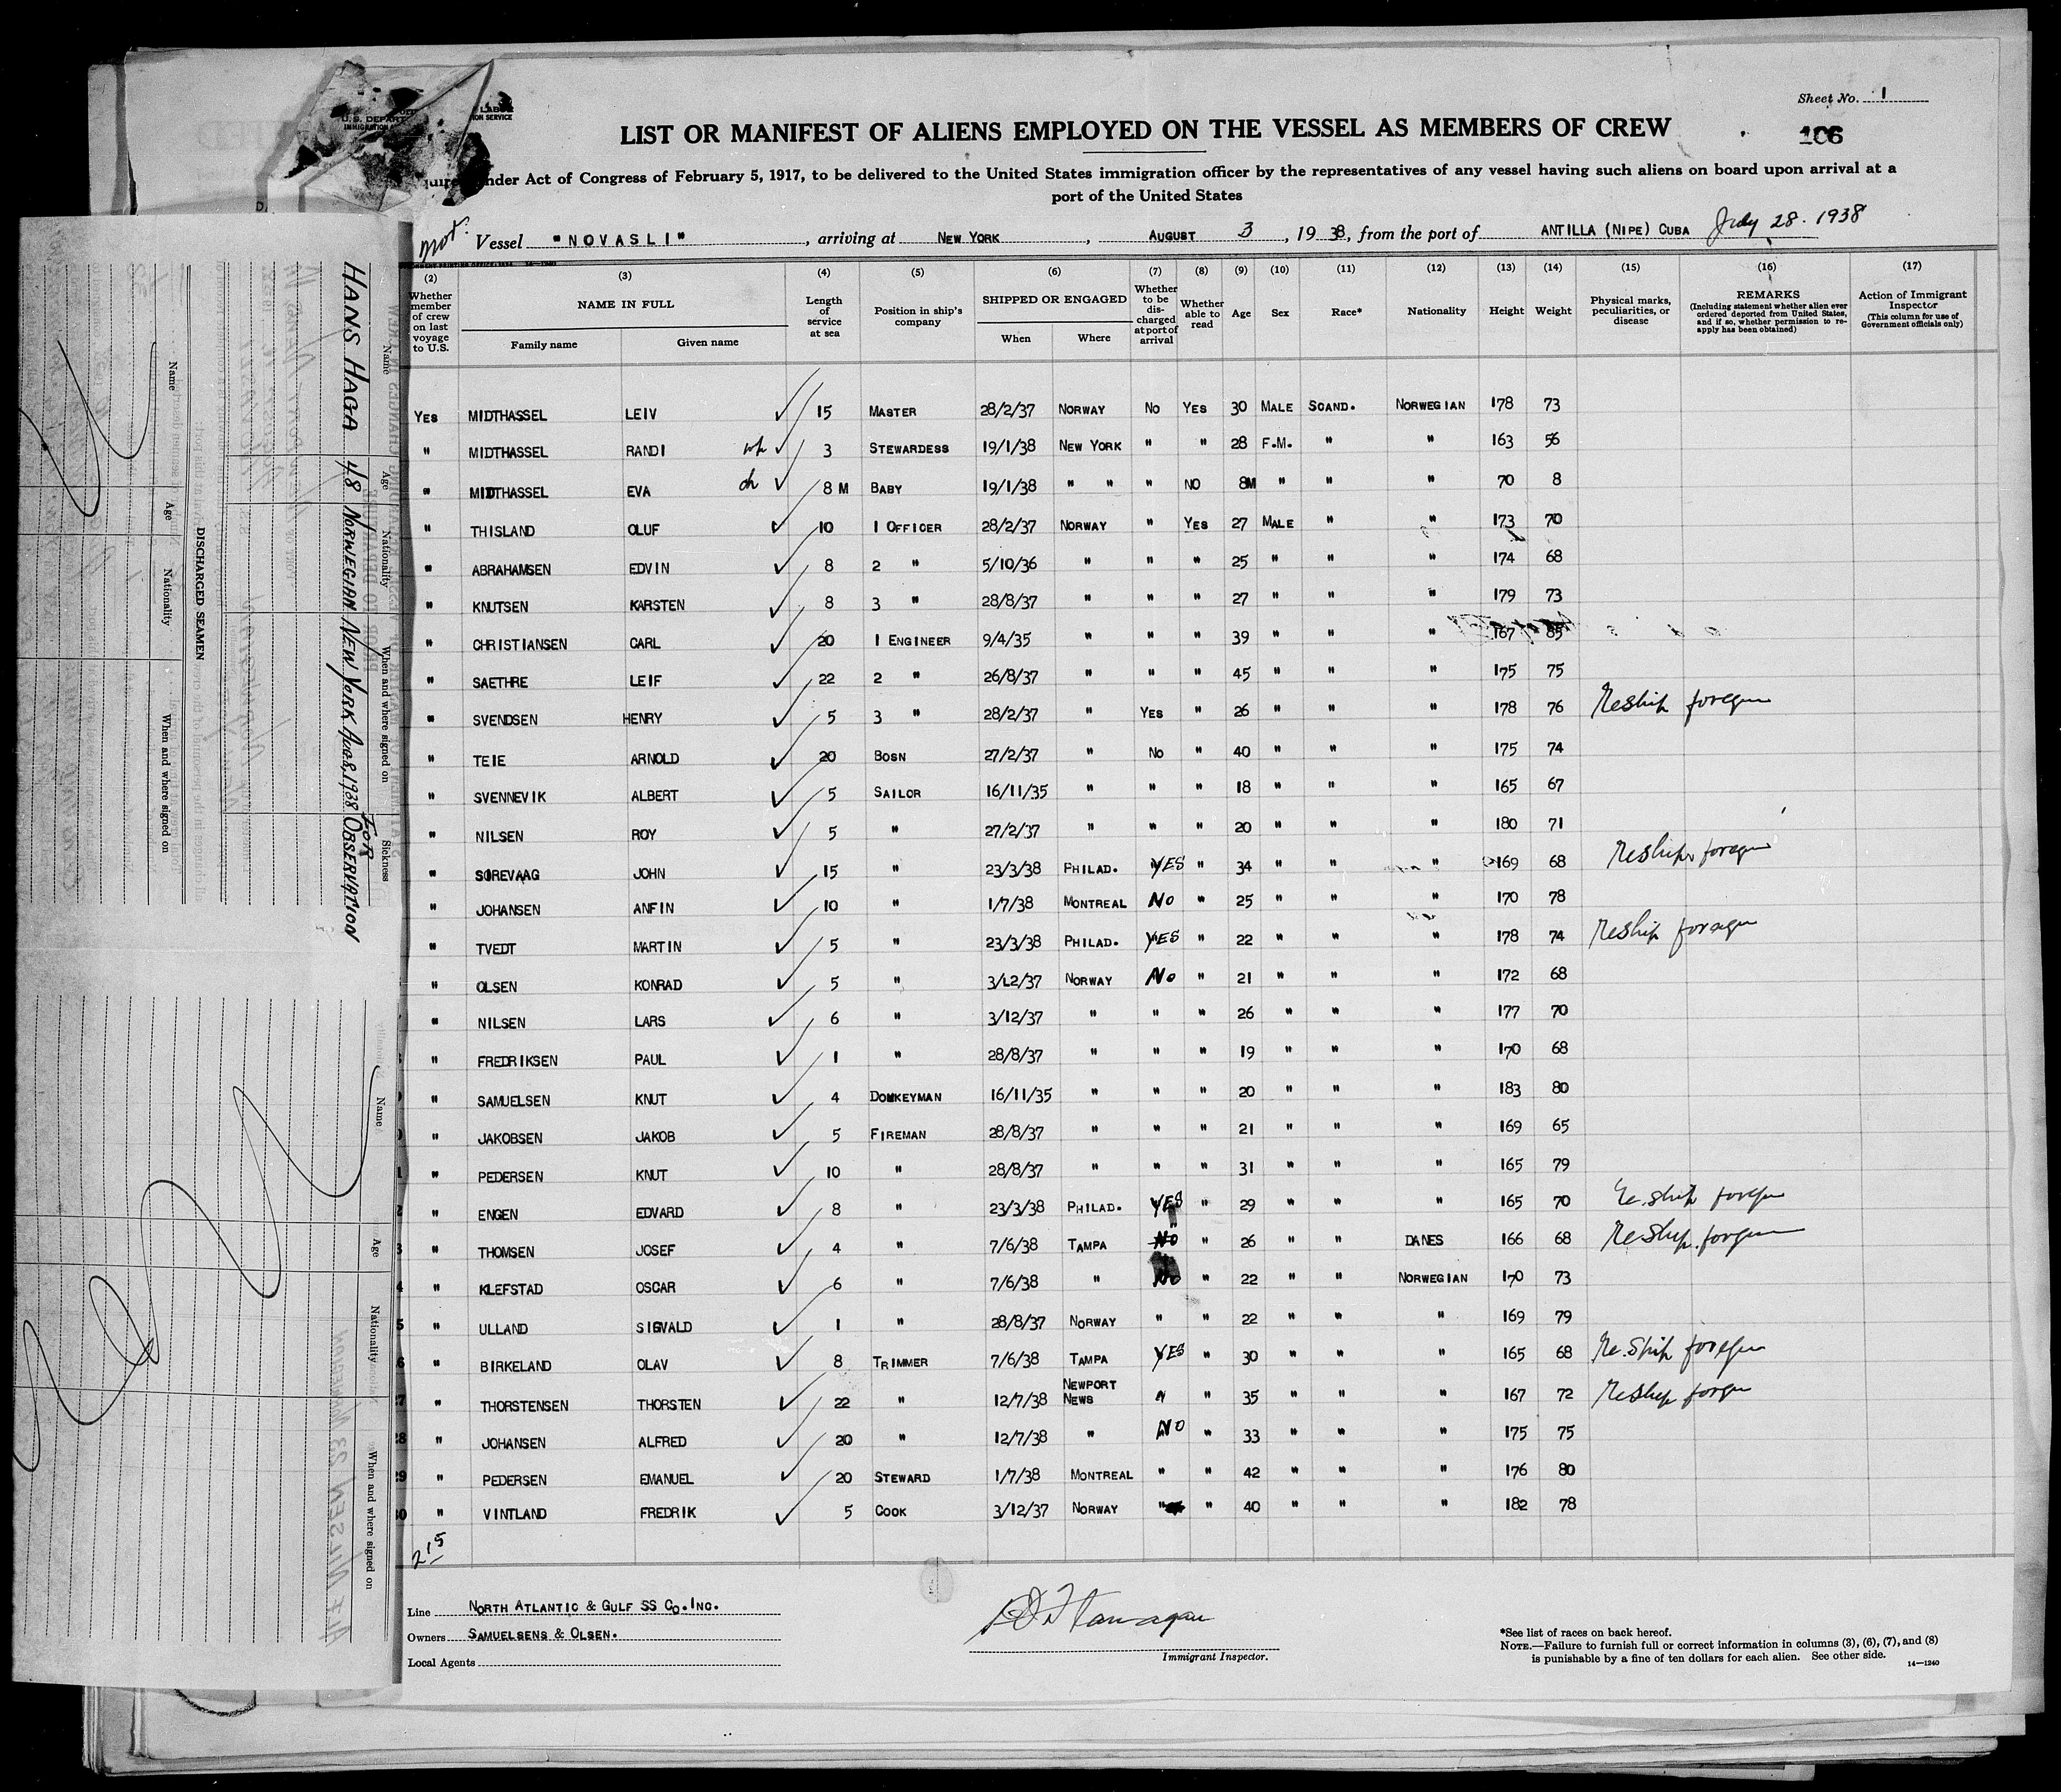 Sheet No. 1
U.S. DEPART
LABOR
IMMIGRATION
ION SERVICE
LIST OR MANIFEST OF ALIENS EMPLOYED ON THE VESSEL AS MEMBERS OF CREW
106
under Act of Congress of February 5, 1917, to be delivered to the United States immigration officer by the representatives of any vessel having such aliens on board upon arrival at a
port of the United States
Vessel "NOVASLI", arriving at NEW YORK, AUGUST 3, 1938, from the port of ANTILLA (NIPE) CUBA July 28. 1938
(2) Whether member of crew on last voyage to U.S.
(3) NAME IN FULL Family name Given name
(4) Length of service at sea
(5) Position in ship's company
(6) SHIPPED OR ENGAGED When Where
(7) Whether to be discharged at port of arrival
(8) Whether able to read
(9) Age
(10) Sex
(11) Race*
(12) Nationality
(13) Height
(14) Weight
(15) Physical marks, peculiarities, or disease
(16) REMARKS (Including statement whether alien ever ordered deported from United States, and if so, whether permission to reapply has been obtained)
(17) Action of Immigrant Inspector (This column for use of Government officials only)
YES MIDTHASSEL LEIV 15 MASTER 28/2/37 NORWAY NO YES 30 MALE SCAND. NORWEGIAN 178 73
" MIDTHASSEL RANDI 3 STEWARDESS 19/1/38 NEW YORK " " 28 F.M. " " 163 56
" MIDTHASSEL EVA ch 8 M BABY 19/1/38 " " " NO 8M " " " 70 8
" THISLAND OLUF 10 1 OFFICER 28/2/37 NORWAY " YES 27 MALE " " 173 70
" ABRAHAMSEN EDVIN 8 2 " 5/10/36 " " " 25 " " " 174 68
" KNUTSEN KARSTEN 8 3 " 28/8/37 " " " 27 " " " 179 73
" CHRISTIANSEN CARL 20 1 ENGINEER 9/4/35 " " " 39 " " " 167 85
" SAETHRE LEIF 22 2 " 26/8/37 " " " 45 " " " 175 75
" SVENDSEN HENRY 5 3 " 28/2/37 " YES " 26 " " " 178 76 Reship foregn
" TEIE ARNOLD 20 BOSN 27/2/37 " NO " 40 " " " 175 74
" SVENNEVIK ALBERT 5 SAILOR 16/11/35 " " " 18 " " " 165 67
" NILSEN ROY 5 " 27/2/37 " " " 20 " " " 180 71
" SOREVAAG JOHN 15 " 23/3/38 PHILAD. YES " 34 " " " 169 68 Reship foregn
" JOHANSEN ANFIN 10 " 1/7/38 MONTREAL NO " 25 " " " 170 78
" TVEDT MARTIN 5 " 23/3/38 PHILAD. YES " 22 " " " 178 74 Reship foregn
" OLSEN KONRAD 5 " 3/12/37 NORWAY NO " 21 " " " 172 68
" NILSEN LARS 6 " 3/12/37 " " " 26 " " " 177 70
" FREDRIKSEN PAUL 1 " 28/8/37 " " " 19 " " " 170 68
" SAMUELSEN KNUT 4 DONKEYMAN 16/11/35 " " " 20 " " " 183 80
" JAKOBSEN JAKOB 5 FIREMAN 28/8/37 " " " 21 " " " 169 65
1 " PEDERSEN KNUT 10 " 28/8/37 " " " 31 " " " 165 79
2 " ENGEN EDVARD 8 " 23/3/38 PHILAD. YES " 29 " " " 165 70 Re.ship foregn
3 " THOMSEN JOSEF 4 " 7/6/38 TAMPA NO " 26 " " DANES 166 68 Reship.foregn
4 " KLEFSTAD OSCAR 6 " 7/6/38 " NO " 22 " " NORWEGIAN 170 73
5 " ULLAND SIGVALD 1 " 28/8/37 NORWAY " " 22 " " " 169 79
6 " BIRKELAND OLAV 8 TRIMMER 7/6/38 TAMPA YES " 30 " " " 165 68 Re.Ship foregn
27 " THORSTENSEN THORSTEN 22 " 12/7/38 NEWPORT NEWS " " 35 " " " 167 72 Reship foregn
28 " JOHANSEN ALFRED 20 " 12/7/38 " NO " 33 " " " 175 75
29 " PEDERSEN EMANUEL 20 STEWARD 1/7/38 MONTREAL " " 42 " " " 176 80
30 " VINTLAND FREDRIK 5 COOK 3/12/37 NORWAY " " 40 " " " 182 78
Line NORTH ATLANTIC & GULF SS CO. INC.
Owners SAMUELSENS & OLSEN.
Local Agents
Immigrant Inspector.
*See list of races on back hereof.
NOTE.—Failure to furnish full or correct information in columns (3), (6), (7), and (8)
is punishable by a fine of ten dollars for each alien. See other side.
14—1240
Name Age Nationality When and where signed on Sickness
HANS HAGA 48 NORWEGIAN NEW YORK AUG 2, 1938 FOR OBSERVATION
DISCHARGED SEAMEN
Name Age Nationality When and where signed on
Name Age Nationality When and where signed on